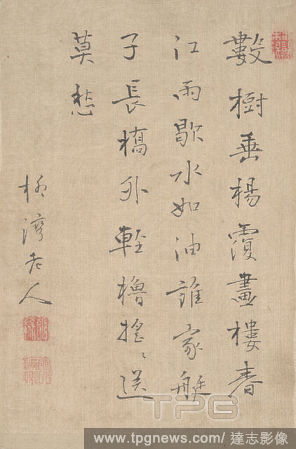 數樹垂楊覆畫樓春
江雨歇水如油誰家艇
子長橋外輕櫓搖〻送
莫愁
老人
TPG
www.tpgnews.com / 達志影像